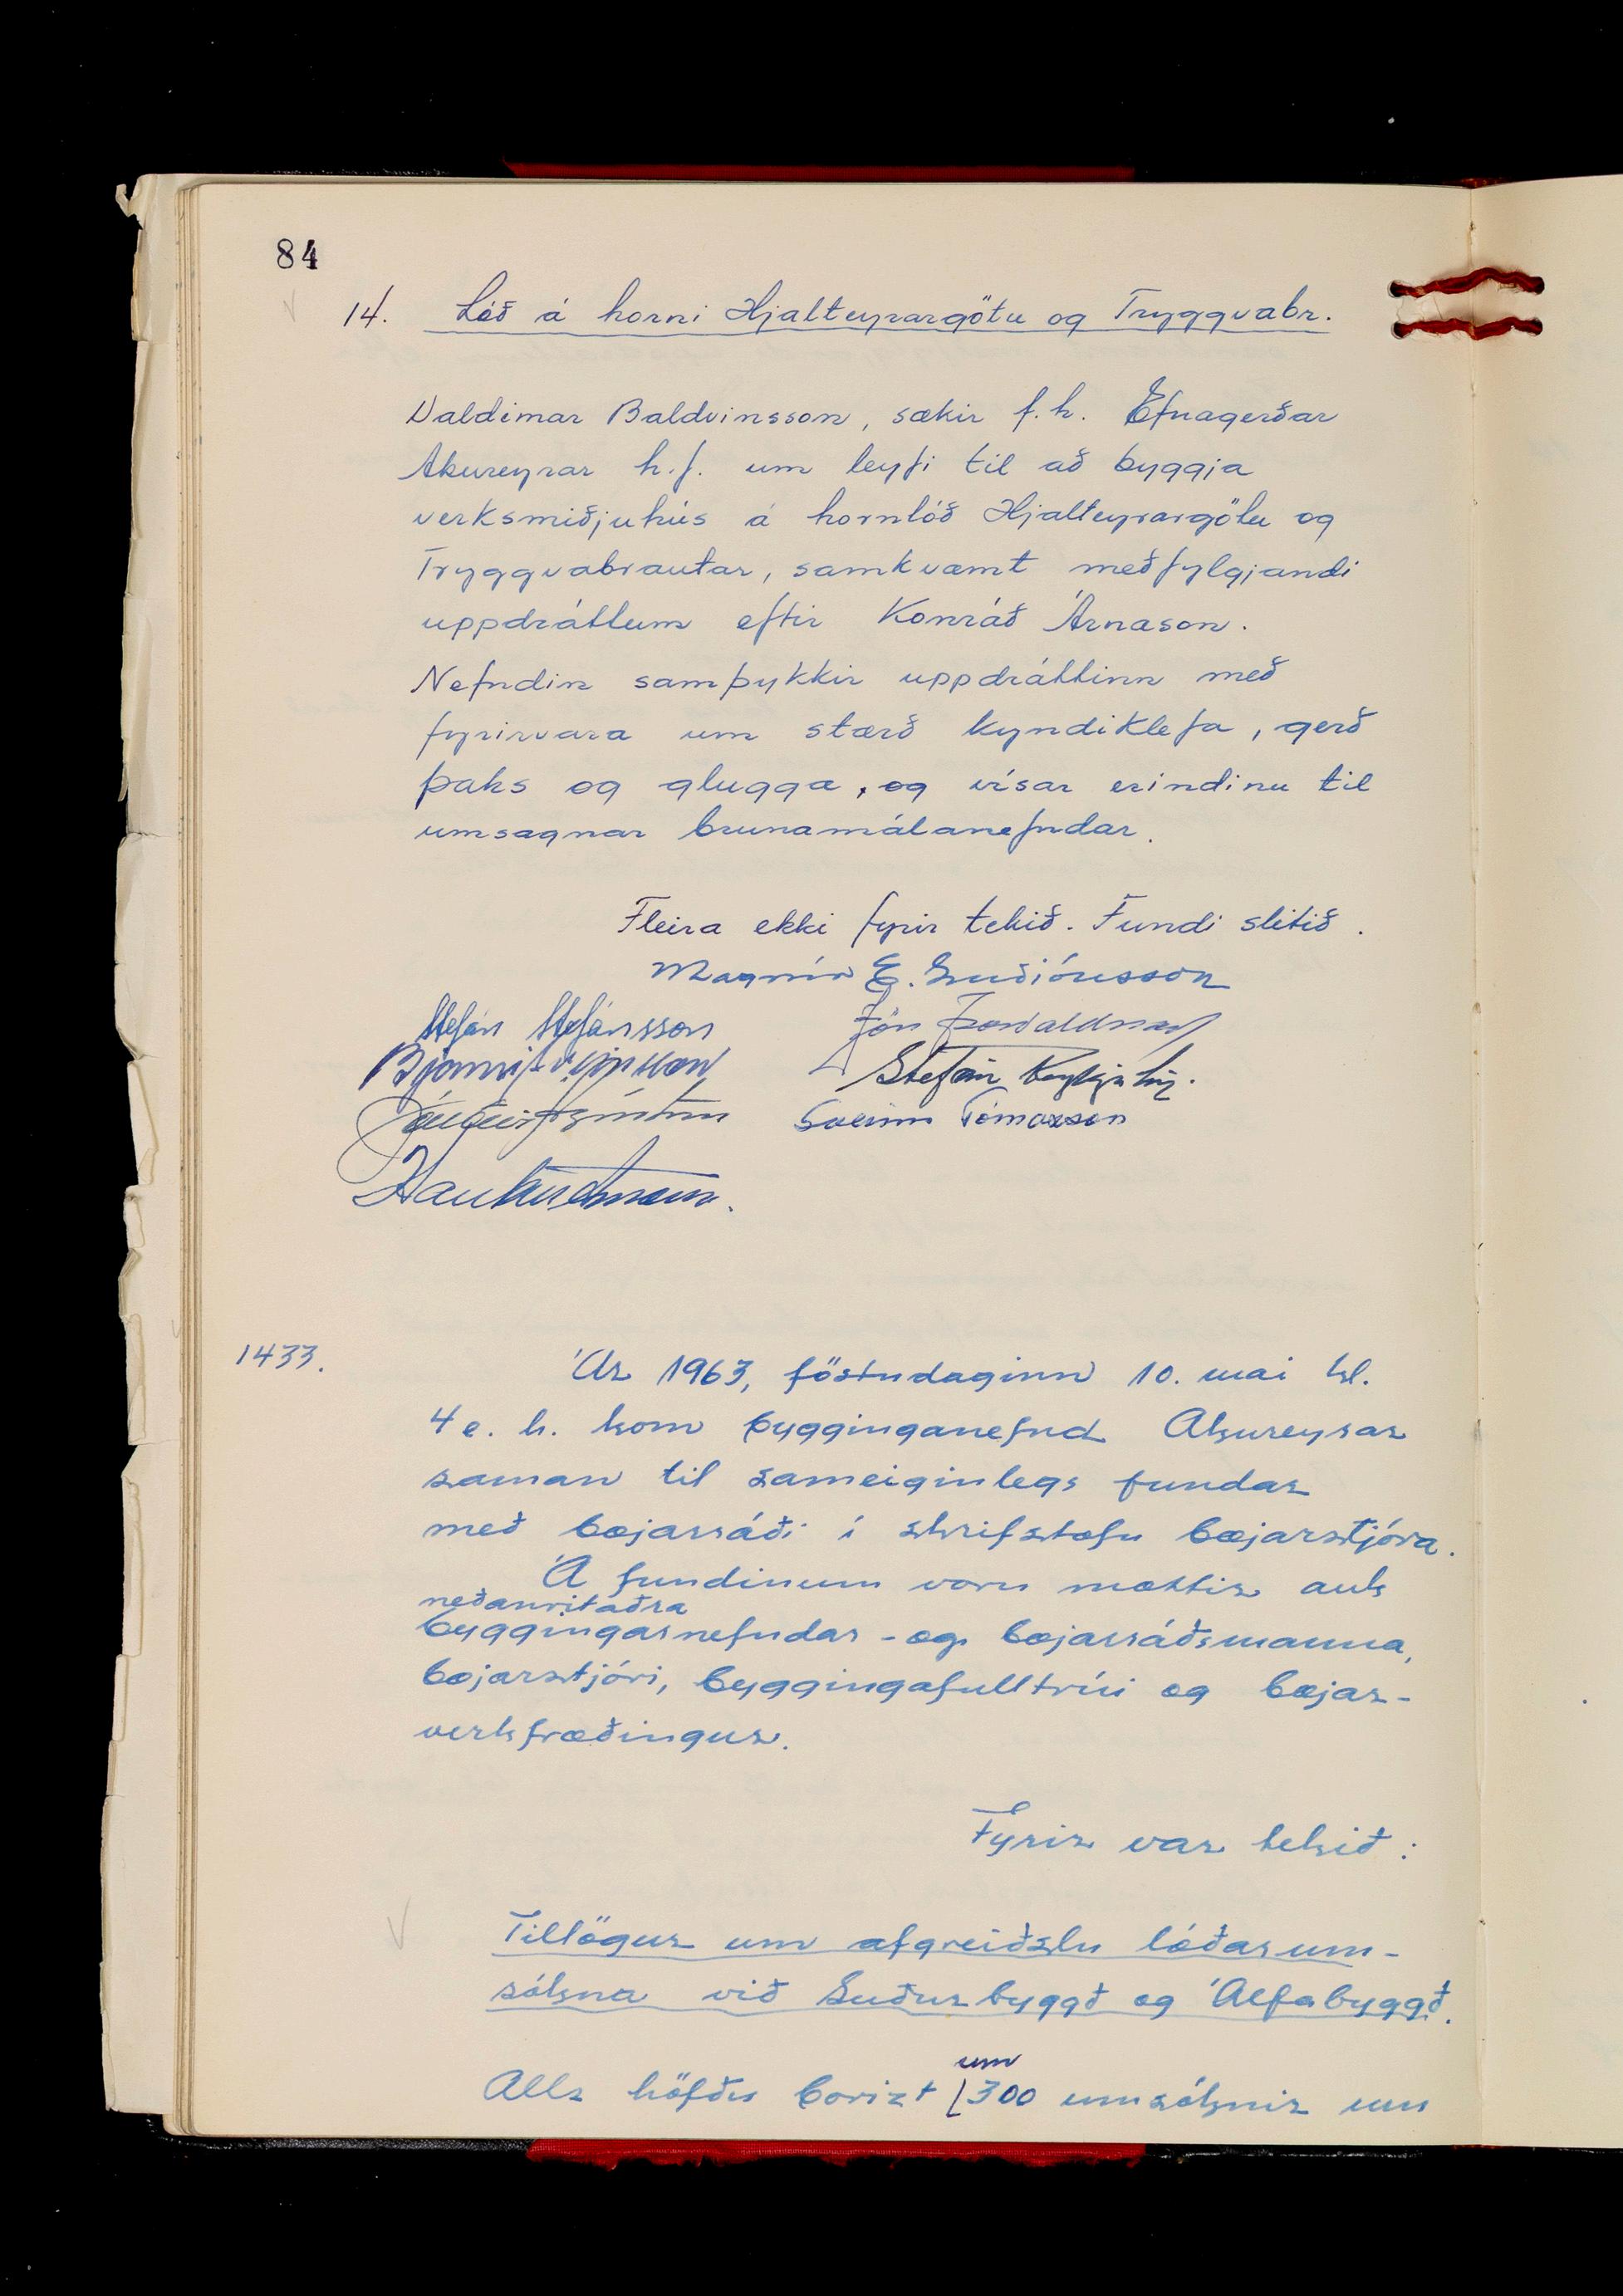 84
14. Lóð á horni Hjalteyrargötu og Tryggvabr.
Valdimar Baldvinsson, sækir f.h. Efnagerðar
Akureyrar h.f. um leyfi til að byggja
verksmiðjuhús á hornlóð Hjalteyrargötu og
Tryggvabrautar, samkvæmt meðfylgjandi
uppdráttum eftir Konráð Árnason.
Nefndin samþykkir uppdráttinn með
fyrirvara um stærð kyndiklefa, gerð
þaks og glugga, og vísar erindinu til
umsagnar brunamálanefndar.
Fleira ekki fyrir tekið. Fundi slitið.
Magnús E. Guðjónsson
Stefán Stefánsson Jón Þorvaldsson
Stefán Reykjalín.
Sveinn Tómasson
1433. Ár 1963, föstudaginn 10. mai kl.
4 e. h. kom bygginganefnd Akureyrar
saman til sameiginlegs fundar
með bæjarráði í skrifstofu bæjarstjóra.
Á fundinum voru mættir auk
neðanritaðra
byggingarnefndar- og bæjarráðsmanna,
bæjarstjóri, byggingafulltrúi og bæjar-
verkfræðingur.
Fyrir var tekið:
Tillögur um afgreiðslu lóðarum-
sókna við Suðurbyggð og Álfabyggð.
um
Alls höfðu borizt 300 umsóknir um